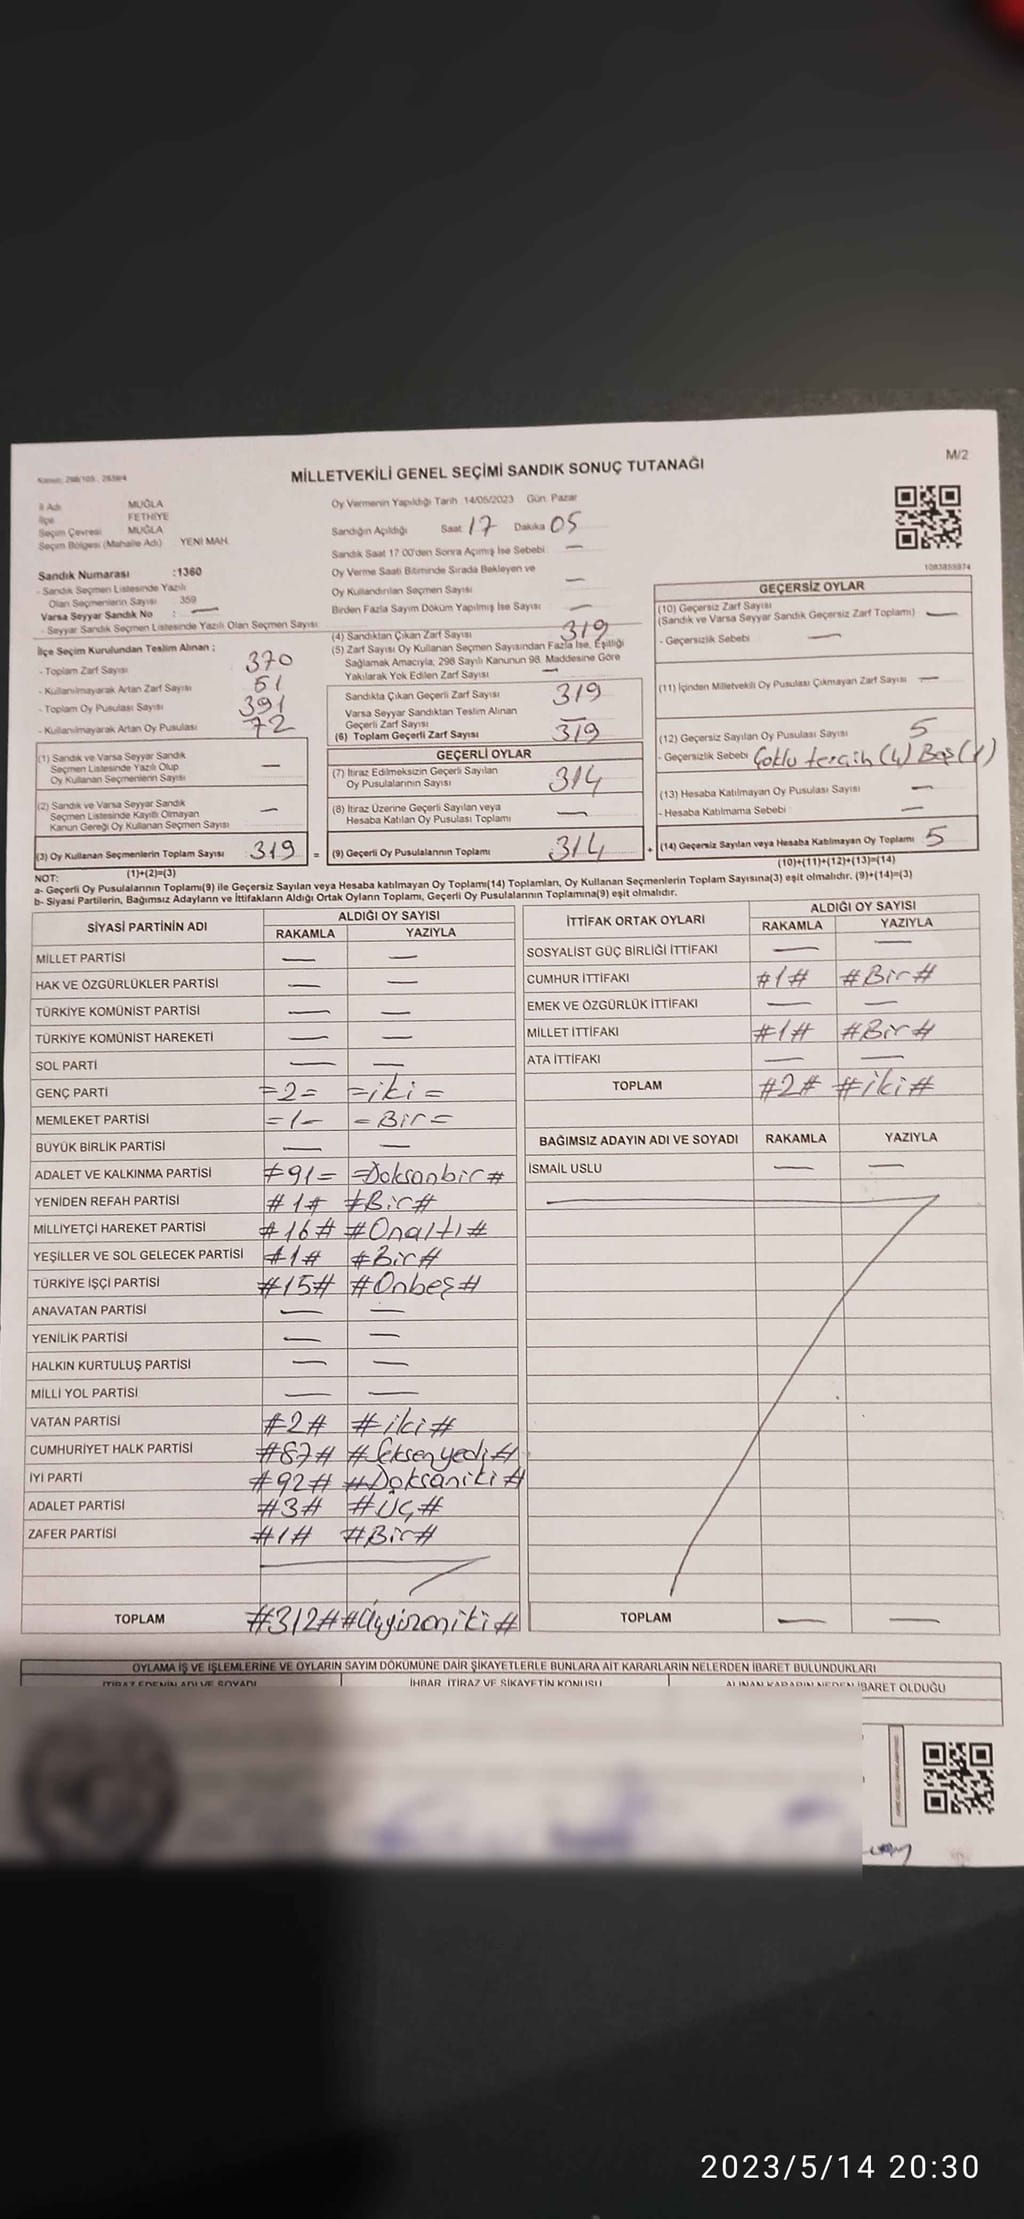 M/2
MİLLETVEKİLİ GENEL SEÇİMİ SANDIK SONUÇ TUTANAĞI
İl Adı MUĞLA
İlçe FETHİYE
Seçim Çevresi MUĞLA
Seçim Bölgesi (Mahalle Adı) YENİ MAH.
Sandık Numarası :1360
- Sandık Seçmen Listesinde Yazılı
Olan Seçmenlerin Sayısı : 359
Varsa Seyyar Sandık No : —
- Seyyar Sandık Seçmen Listesinde Yazılı Olan Seçmen Sayısı:
İlçe Seçim Kurulundan Teslim Alınan ;
- Toplam Zarf Sayısı 370
- Kullanılmayarak Artan Zarf Sayısı 51
- Toplam Oy Pusulası Sayısı 391
- Kullanılmayarak Artan Oy Pusulası 72
(1) Sandık ve Varsa Seyyar Sandık
Seçmen Listesinde Yazılı Olup
Oy Kullanan Seçmenlerin Sayısı —
(2) Sandık ve Varsa Seyyar Sandık
Seçmen Listesinde Kayıtlı Olmayan
Kanun Gereği Oy Kullanan Seçmen Sayısı —
(3) Oy Kullanan Seçmenlerin Toplam Sayısı 319 =
(1)+(2)=(3)
Oy Vermenin Yapıldığı Tarih 14/05/2023 Gün: Pazar
Sandığın Açıldığı Saat 17 Dakika 05
Sandık Saat 17:00'den Sonra Açımış İse Sebebi : —
Oy Verme Saati Bitiminde Sırada Bekleyen ve
Oy Kullandırılan Seçmen Sayısı —
Birden Fazla Sayım Döküm Yapılmış İse Sayısı —
(4) Sandıktan Çıkan Zarf Sayısı 319
(5) Zarf Sayısı Oy Kullanan Seçmen Sayısından Fazla İse, Eşitliği
Sağlamak Amacıyla, 298 Sayılı Kanunun 98. Maddesine Göre
Yakılarak Yok Edilen Zarf Sayısı —
Sandıkta Çıkan Geçerli Zarf Sayısı 319
Varsa Seyyar Sandıktan Teslim Alınan
Geçerli Zarf Sayısı —
(6) Toplam Geçerli Zarf Sayısı 319
GEÇERLİ OYLAR
(7) İtiraz Edilmeksizin Geçerli Sayılan
Oy Pusulalarının Sayısı 314
(8) İtiraz Üzerine Geçerli Sayılan veya
Hesaba Katılan Oy Pusulası Toplamı —
(9) Geçerli Oy Pusulalarının Toplamı 314 +
GEÇERSİZ OYLAR
(10) Geçersiz Zarf Sayısı
(Sandık ve Varsa Seyyar Sandık Geçersiz Zarf Toplamı) —
- Geçersizlik Sebebi —
(11) İçinden Milletvekili Oy Pusulası Çıkmayan Zarf Sayısı —
(12) Geçersiz Sayılan Oy Pusulası Sayısı 5
- Geçersizlik Sebebi Çoklu tercih (4) Boş (1)
(13) Hesaba Katılmayan Oy Pusulası Sayısı —
- Hesaba Katılmama Sebebi : —
(14) Geçersiz Sayılan veya Hesaba Katılmayan Oy Toplamı 5
(10)+(11)+(12)+(13)=(14)
NOT:
a- Geçerli Oy Pusulalarının Toplamı(9) ile Geçersiz Sayılan veya Hesaba katılmayan Oy Toplamı(14) Toplamları, Oy Kullanan Seçmenlerin Toplam Sayısına(3) eşit olmalıdır. (9)+(14)=(3)
b- Siyasi Partilerin, Bağımsız Adayların ve İttifakların Aldığı Ortak Oyların Toplamı, Geçerli Oy Pusulalarının Toplamına(9) eşit olmalıdır.
SİYASİ PARTİNİN ADI ALDIĞI OY SAYISI
RAKAMLA YAZIYLA
MİLLET PARTİSİ — —
HAK VE ÖZGÜRLÜKLER PARTİSİ — —
TÜRKİYE KOMÜNİST PARTİSİ — —
TÜRKİYE KOMÜNİST HAREKETİ — —
SOL PARTİ — —
GENÇ PARTİ =2= =iki=
MEMLEKET PARTİSİ =1- =Bir=
BÜYÜK BİRLİK PARTİSİ — —
ADALET VE KALKINMA PARTİSİ #91= =Doksanbir#
YENİDEN REFAH PARTİSİ #1# #Bir#
MİLLİYETÇİ HAREKET PARTİSİ #16# #Onaltı#
YEŞİLLER VE SOL GELECEK PARTİSİ #1# #Bir#
TÜRKİYE İŞÇİ PARTİSİ #15# #Onbeş#
ANAVATAN PARTİSİ — —
YENİLİK PARTİSİ — —
HALKIN KURTULUŞ PARTİSİ — —
MİLLİ YOL PARTİSİ — —
VATAN PARTİSİ #2# #iki#
CUMHURİYET HALK PARTİSİ #87# #Seksenyedi#
İYİ PARTİ #92# #Doksaniki#
ADALET PARTİSİ #3# #Üç#
ZAFER PARTİSİ #1# #Bir#
TOPLAM #312# #Üçyüzoniki#
İTTİFAK ORTAK OYLARI ALDIĞI OY SAYISI
RAKAMLA YAZIYLA
SOSYALİST GÜÇ BİRLİĞİ İTTİFAKI — —
CUMHUR İTTİFAKI #1# #Bir#
EMEK VE ÖZGÜRLÜK İTTİFAKI — —
MİLLET İTTİFAKI #1# #Bir#
ATA İTTİFAKI — —
TOPLAM #2# #iki#
BAĞIMSIZ ADAYIN ADI VE SOYADI RAKAMLA YAZIYLA
İSMAİL USLU — —
TOPLAM — —
OYLAMA İŞ VE İŞLEMLERİNE VE OYLARIN SAYIM DÖKÜMÜNE DAİR ŞİKAYETLERLE BUNLARA AİT KARARLARIN NELERDEN İBARET BULUNDUKLARI
İTİRAZ EDENİN ADI VE SOYADI İHBAR, İTİRAZ VE ŞİKAYETİN KONUSU ALINAN KARARIN NEDEN İBARET OLDUĞU
2023/5/14 20:30